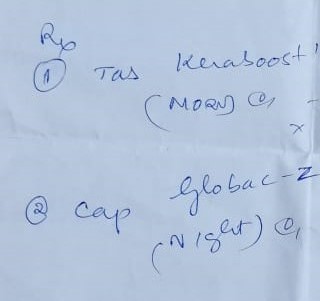 Rx
① Tab Keraboost
(Morn)
x
② Cap Globac-Z
(Night)